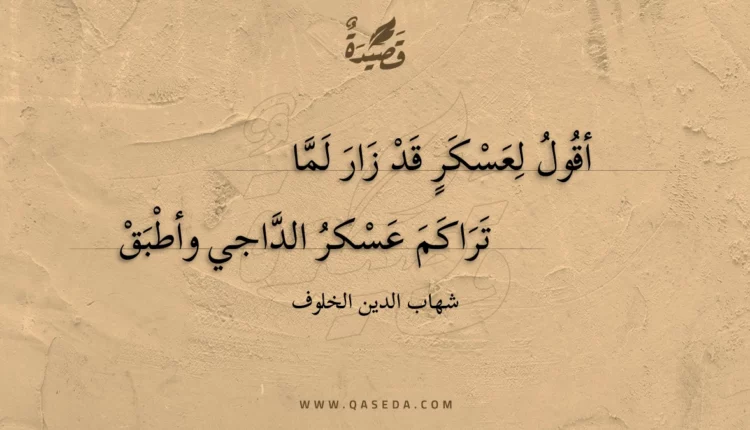 قَصِيدَةٌ
أقُولُ لِعَسْكَرٍ قَدْ زَارَ لَمَّا
تَرَاكَمَ عَسْكرُ الدَّاجي وأطْبَقْ
شهاب الدين الخلوف
WWW.QASEDA.COM